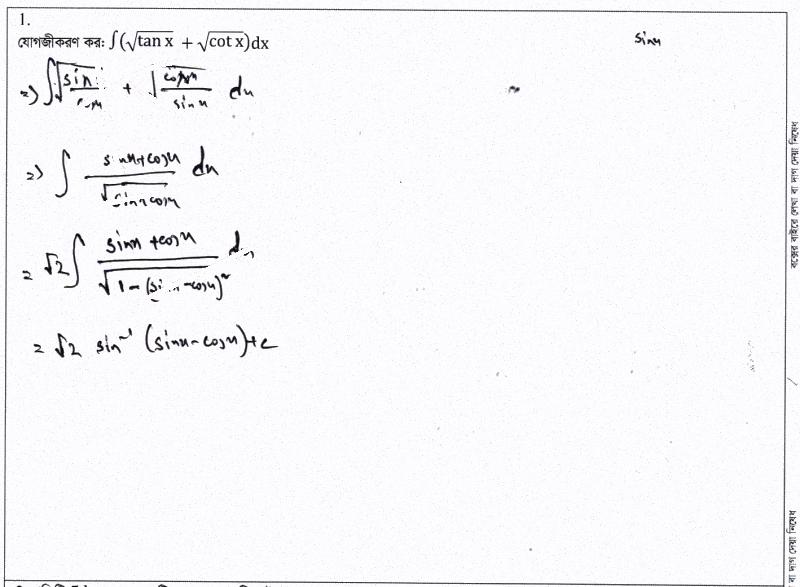 1.
যোগজীকরণ কর: ∫(√tan x + √cot x)dx
sinx
=) ∫√(sin/cosx) + √(cosx/sinx) dx
=) ∫ (sinx+cosx)/√(sinxcosx) dx
= √2∫ (sinx+cosx)/√(1-(sin -cosx)²) dx
= √2 sin⁻¹ (sinx-cosx)+c
বক্সের বাইরে লেখা বা দাগ দেয়া নিষেধ
বা দাগ দেয়া নিষেধ